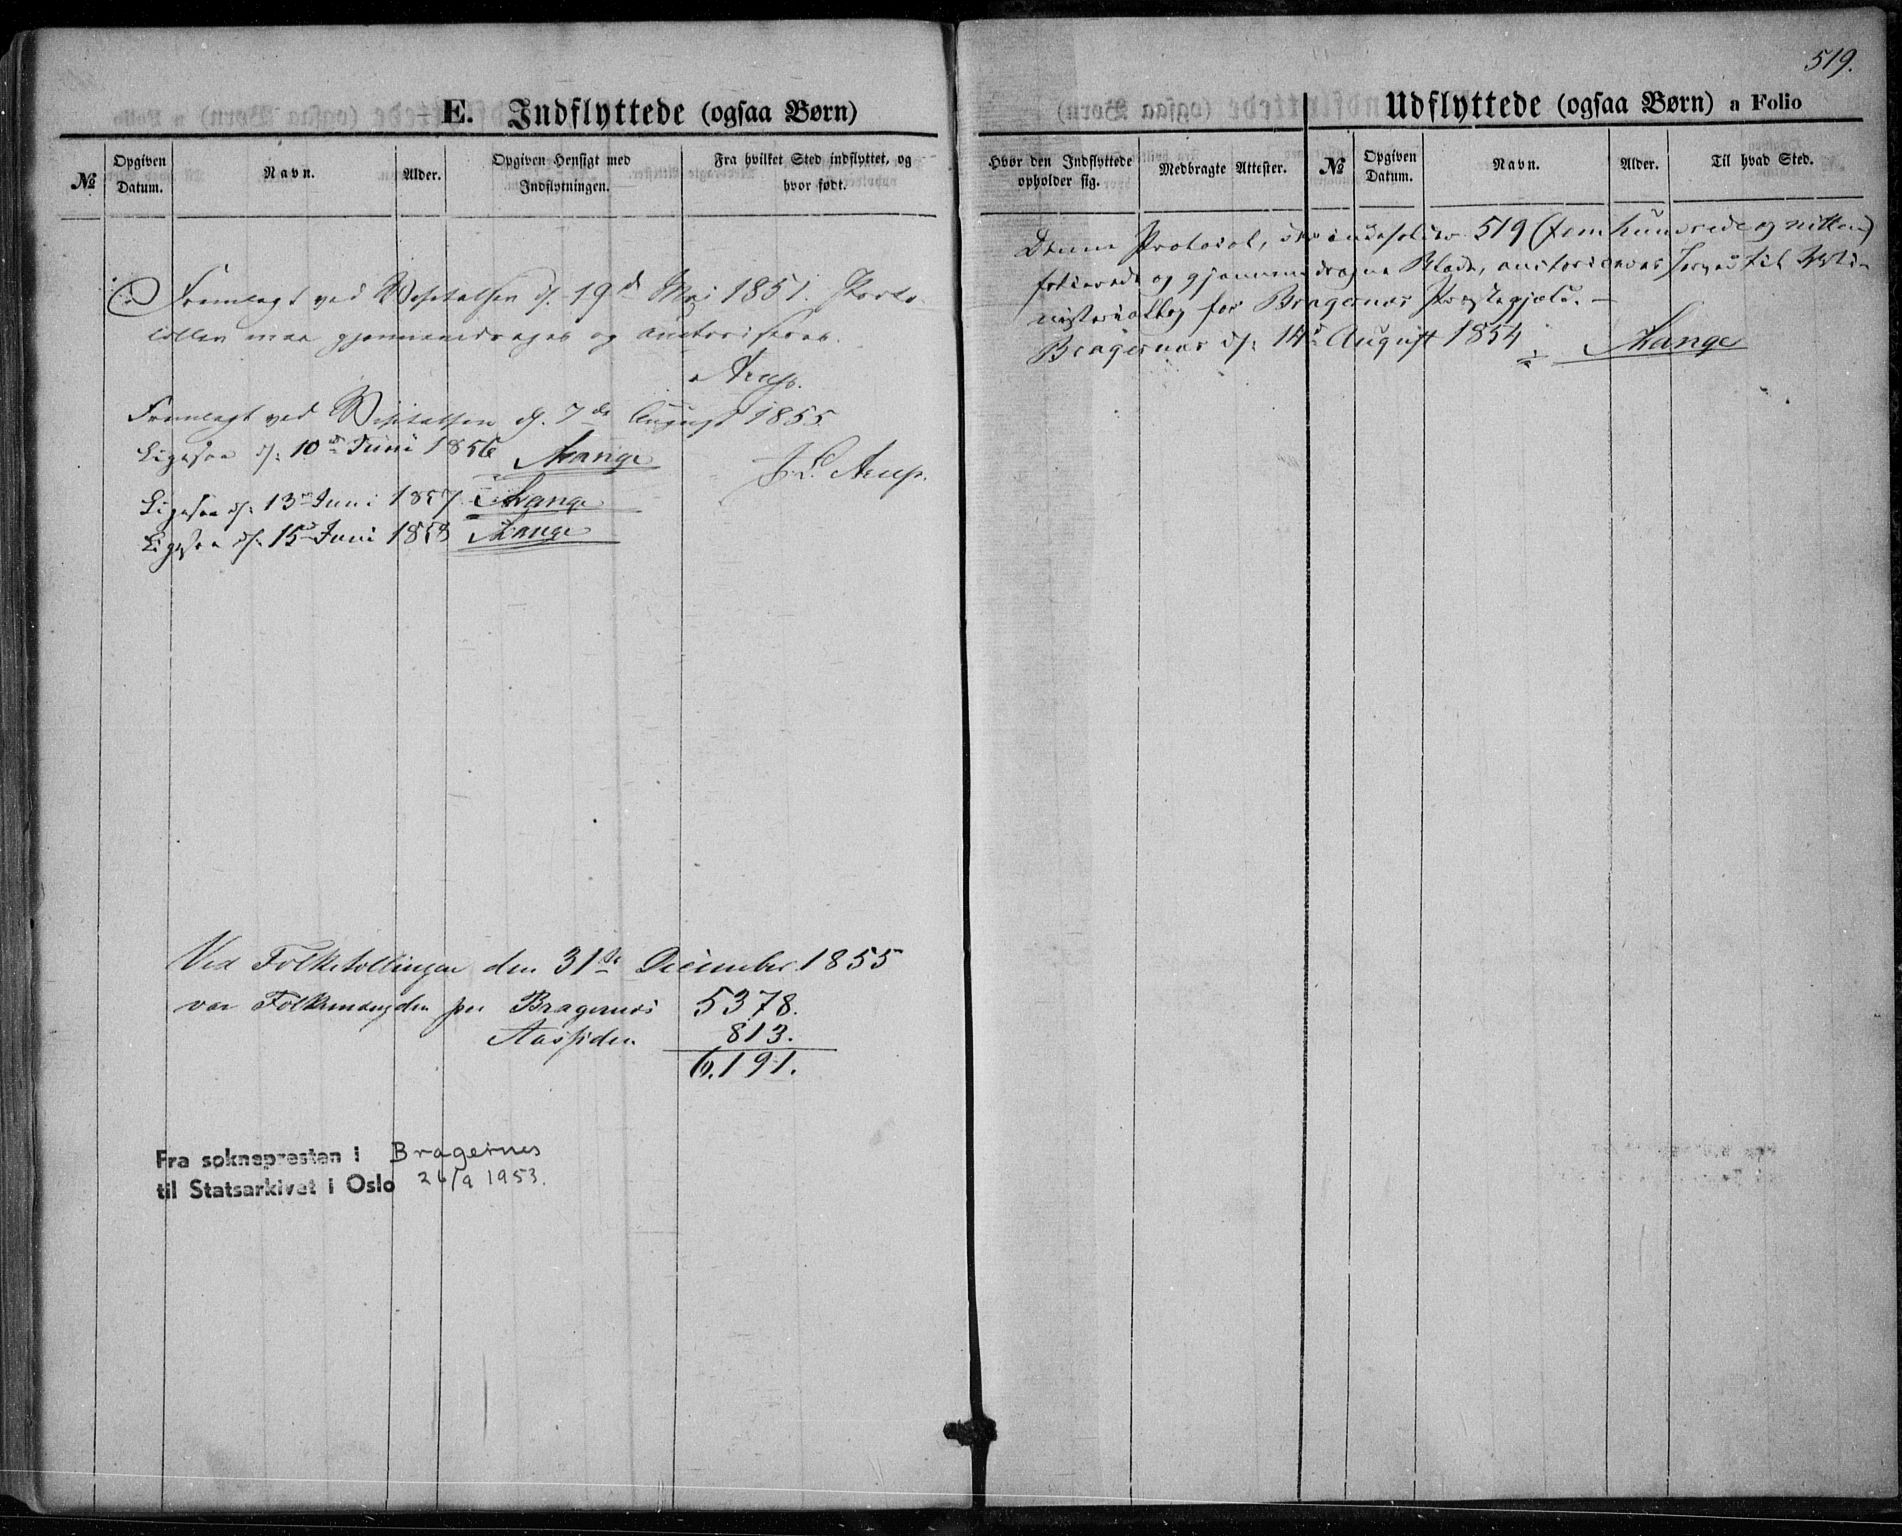 E. Indflyttede (ogsaa Børn)
№ Opgiven Datum. Navn. Alder. Opgiven Hensigt med Indflytningen. Fra hvilket Sted indflyttet, og hvor født.
Fremlagt ved Visitatsen d. 19d Mai 1851. Proto-
collen maa gjennemdrages og auctoriseres.
Arup.
Fremlagt ved Visitatsen d. 7de August 1855
J. L. Arup.
Ligesaa d: 10de Juni 1856 Lange
Ligesaa d: 13de Juni 1857 Lange
Ligesaa d: 15de Juni 1858 Lange
Ved Folketællingen den 31te December 1855
var Folkemængden paa Bragernes 5378.
Aassiden 813.
6,191.
Fra soknepresten i Bragernes
til Statsarkivet i Oslo 26/9 1953.
519.
Udflyttede (ogsaa Børn) a Folio
Hvor den Indflyttede opholder sig. Medbragte Attester. № Opgiven Datum. Navn. Alder. Til hvad Sted.
Denne Protocol, 519 (fem hundrede og nitten)
folierede og gjennemdragne Blade, auctoriseres herved til Mi-
nisterialbog for Bragernes Præstegjæld. —
Bragernes d: 14de August 1854 Lange